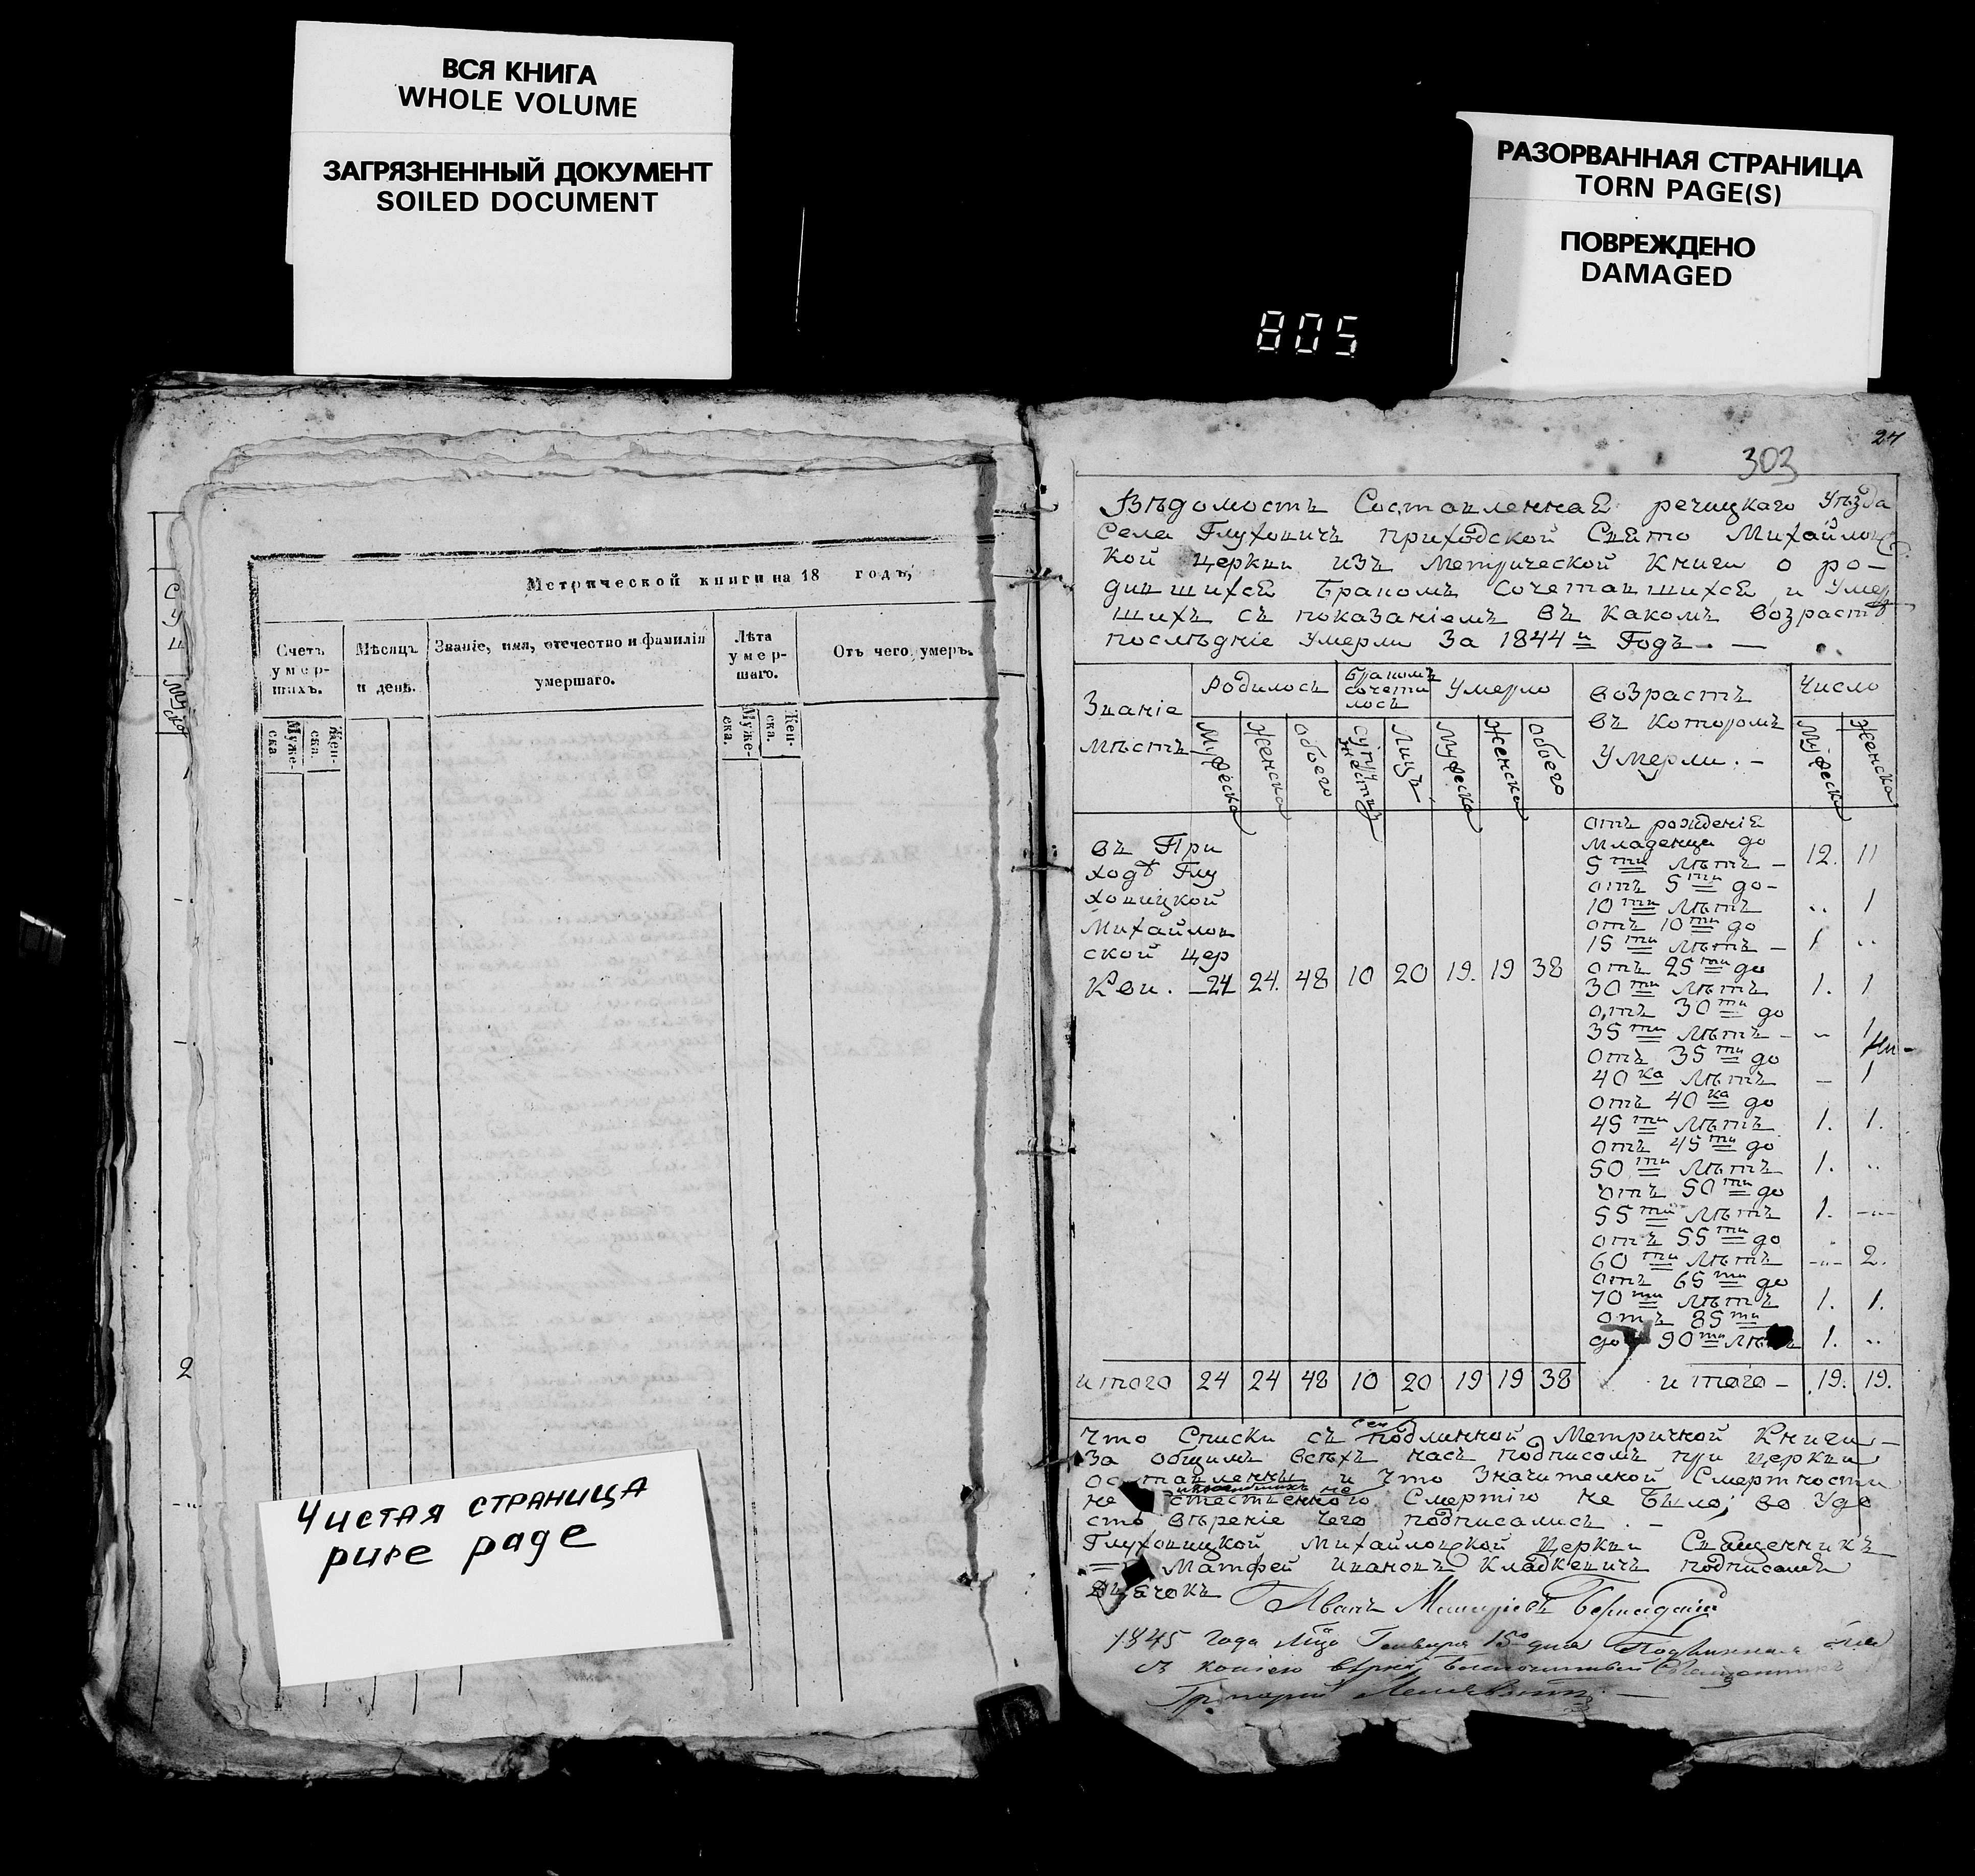 ВСЯ КНИГА
WHOLE VOLUME
ЗАГРЯЗНЕННЫЙ ДОКУМЕНТ
SOILED DOCUMENT
РАЗОРВАННАЯ СТРАНИЦА
TORN PAGE(S)
ПОВРЕЖДЕНО
DAMAGED
805
Метрической книги на 18 годъ,
Счетъ умер-шихъ.
Муже-ска
Жен-ска.
Мѣсяцъ и день.
Званіе, имя, отечество и фамилія умершаго.
Лѣта умер-шаго.
Муже-ска.
Жен-ска.
Отъ чего умеръ.
2
Чистая страница
pure page
24
303
Вѣдомость Составленная речицкаго Уѣзда
Села Глуховичъ приходской Свято Михайловс
кой церкви изъ Метрической Книги о ро-
дившихся Бракомъ Сочетавшихся и Умер
шихъ съ показаніемъ въ какомъ возрастѣ
послѣдніе Умерли За 1844й Годъ. —
Званіе мѣстъ
Родилось
Бракомъ сочета лось
Умерло
возрастъ въ которомъ Умерли. -
Число
Мужеска Женска Обоего
Супружествъ Лицъ
Мужеска Женска Обоего
Мужеска Женска
въ При
ходѣ Глу
ховицкой
Михайлов
ской Цер
Кви. 24 24. 48 10 20 19. 19 38
отъ рожденія
младенца до
5ти лѣтъ - 12. 11
отъ 5ти до-
10ти лѣтъ .. 1
отъ 10ти до
15ти лѣтъ - 1 ..
отъ 25ти до
30ти лѣтъ 1. 1
отъ 30ти до
35ти лѣтъ - - 1
отъ 35ти до
40ка лѣтъ - 1
отъ 40ка до
45ти лѣтъ 1. 1.
отъ 45ти до
50ти лѣтъ 1. ..
отъ 50ти до
55ти лѣтъ 1. -..-
отъ 55ти до
60ти лѣтъ -..- 2.
отъ 65ти до
70ти лѣтъ 1. 1.
отъ 85ти
до 90ти лѣтъ 1. ..
итого 24 24 48 10 20 19 19 38 итого - 19. 19.
Что Списки съ сей подлинной Метричной Книги
За общимъ всѣхъ насъ подписомъ при церкви
оставленны и Что Значителной Смертности
не Смертію не Было; во Удо
стовѣреніе чего подписались. -
Глуховицкой Михайловской Церкви Священникъ
Матфей Ивановъ Кладкевичъ подписалъ
Дьячокъ Иванъ
1845 года Мца Генваря 15 дня
съ копіею вѣрна Священникъ
Григорій